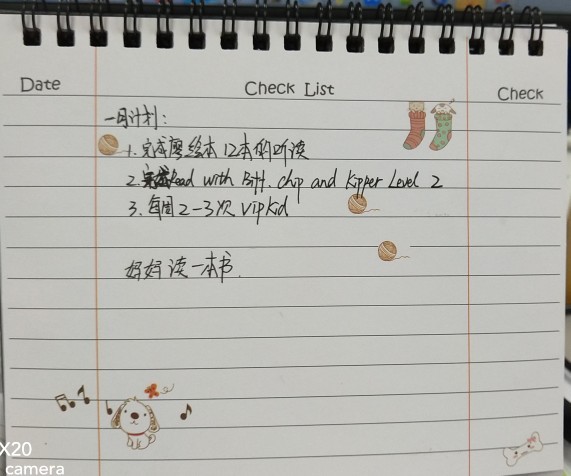 Date Check List Check
一月计划:
1.完成廖绘本12本的听读
2.完成Read with Biff. Chip and Kipper Level 2
3.每周2-3次VipKid
好好读一本书.
X20
camera